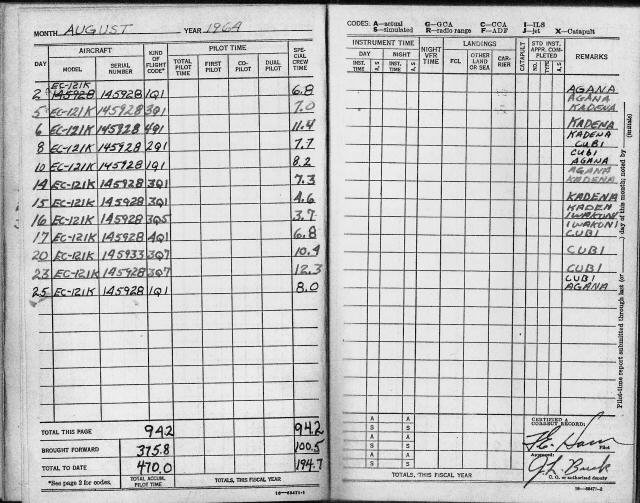 MONTH AUGUST YEAR 1964
AIRCRAFT KIND OF FLIGHT CODE* PILOT TIME SPECIAL CREW TIME
DAY MODEL SERIAL NUMBER TOTAL PILOT TIME FIRST PILOT CO-PILOT DUAL PILOT
EC-121K
2 145928 145928 1Q1 6.8
5 EC-121K 145928 3Q1 7.0
6 EC-121K 145928 4Q1 11.4
8 EC-121K 145928 2Q1 7.7
10 EC-121K 145928 1Q1 8.2
14 EC-121K 145928 3Q1 7.3
15 EC-121K 145928 3Q1 4.6
16 EC-121K 145928 3Q5 3.7
17 EC-121K 145928 4Q1 6.8
20 EC-121K 145933 3Q7 10.4
23 EC-121K 145928 3Q7 12.3
25 EC-121K 145928 1Q1 8.0
TOTAL THIS PAGE 94.2 94.2
BROUGHT FORWARD 375.8 100.5
TOTAL TO DATE 470.0 194.7
*See page 2 for codes. TOTAL ACCUM. PILOT TIME TOTALS, THIS FISCAL YEAR
CODES: A—actual G—GCA C—CCA I—ILS
S—simulated R—radio range F—ADF J—jet X—Catapult
INSTRUMENT TIME NIGHT VFR TIME LANDINGS CATAPULT STD INST. APPR. COMPLETED REMARKS
DAY NIGHT FCL OTHER LAND OR SEA CARRIER NO. TYPE A, S
INST. TIME A, S INST. TIME A, S
AGANA
AGANA
KADENA
KADENA
KADENA
CUBI
CUBI
AGANA
AGANA
KADENA
KADENA
KADEN
IWAKUNI
IWAKUNI
CUBI
CUBI
CUBI
CUBI
AGANA
Pilot-time report submitted through last (or ) day of this month; noted by (initials)
A A
S S
A A
S S
A A
S S
CERTIFIED A CORRECT RECORD:
Pilot
Approved:
C. O. or authorized deputy
TOTALS, THIS FISCAL YEAR